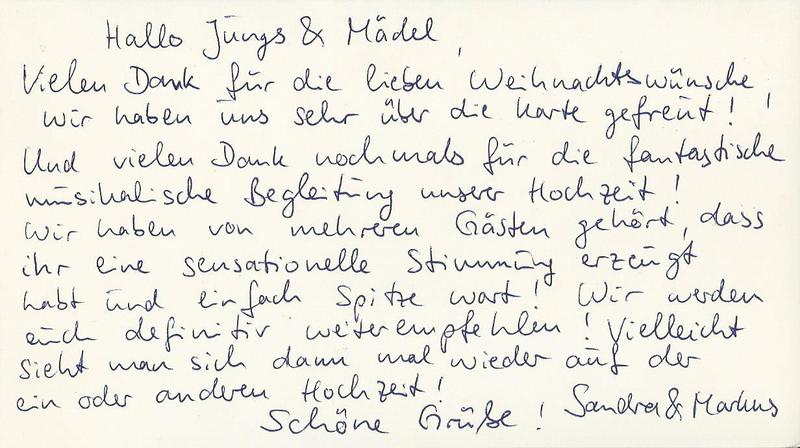 Hallo Jungs & Mädel,
Vielen Dank für die lieben Weihnachtswünsche,
wir haben uns sehr über die Karte gefreut!
Und vielen Dank nochmals für die fantastische
musikalische Begleitung unserer Hochzeit!
Wir haben von mehreren Gästen gehört, dass
ihr eine sensationelle Stimmung erzeugt
habt und einfach Spitze wart! Wir werden
euch definitiv weiterempfehlen! Vielleicht
sieht man sich dann mal wieder auf der
ein oder anderen Hochzeit!
Schöne Grüße! Sandra & Markus